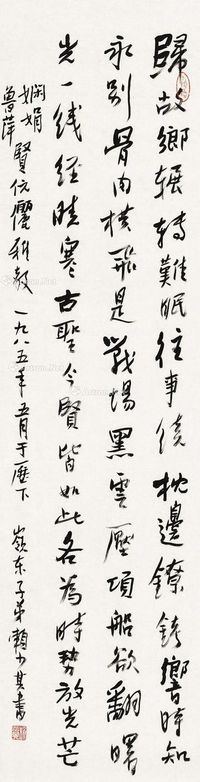 歸故鄉輾轉難眠往事繞枕邊鐐銬響時知
永別骨肉横飛是戰場黑雲壓頂船欲翻曙
光一线經晴寒古聖今賢皆如此各為時势放光芒
娴娟
魯萍 賢伉儷 一九八五年五月于歷下 嶺东子弟賴少其書